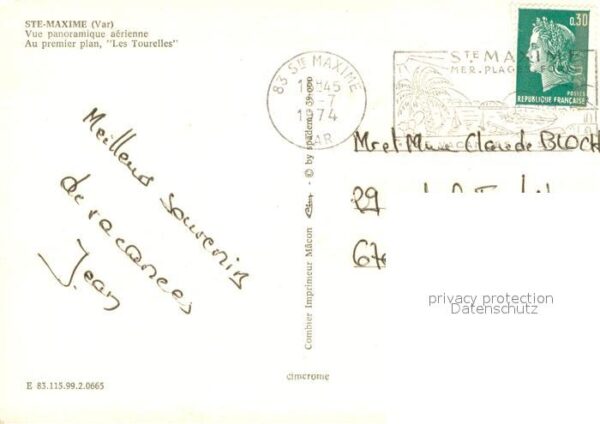 STE-MAXIME (Var)
Vue panoramique aérienne
Au premier plan, "Les Tourelles"
83 STE MAXIME
1974
VAR
STE MAXIME
MER. PLAG
0,30
POSTES
REPUBLIQUE FRANÇAISE
Mr et Mme Claude BLOCH
29
67
Meilleurs souvenirs
de vacances
Jean
Combier Imprimeur Mâcon
© by spadem
cimcrome
E 83.115.99.2.0665
privacy protection
Datenschutz